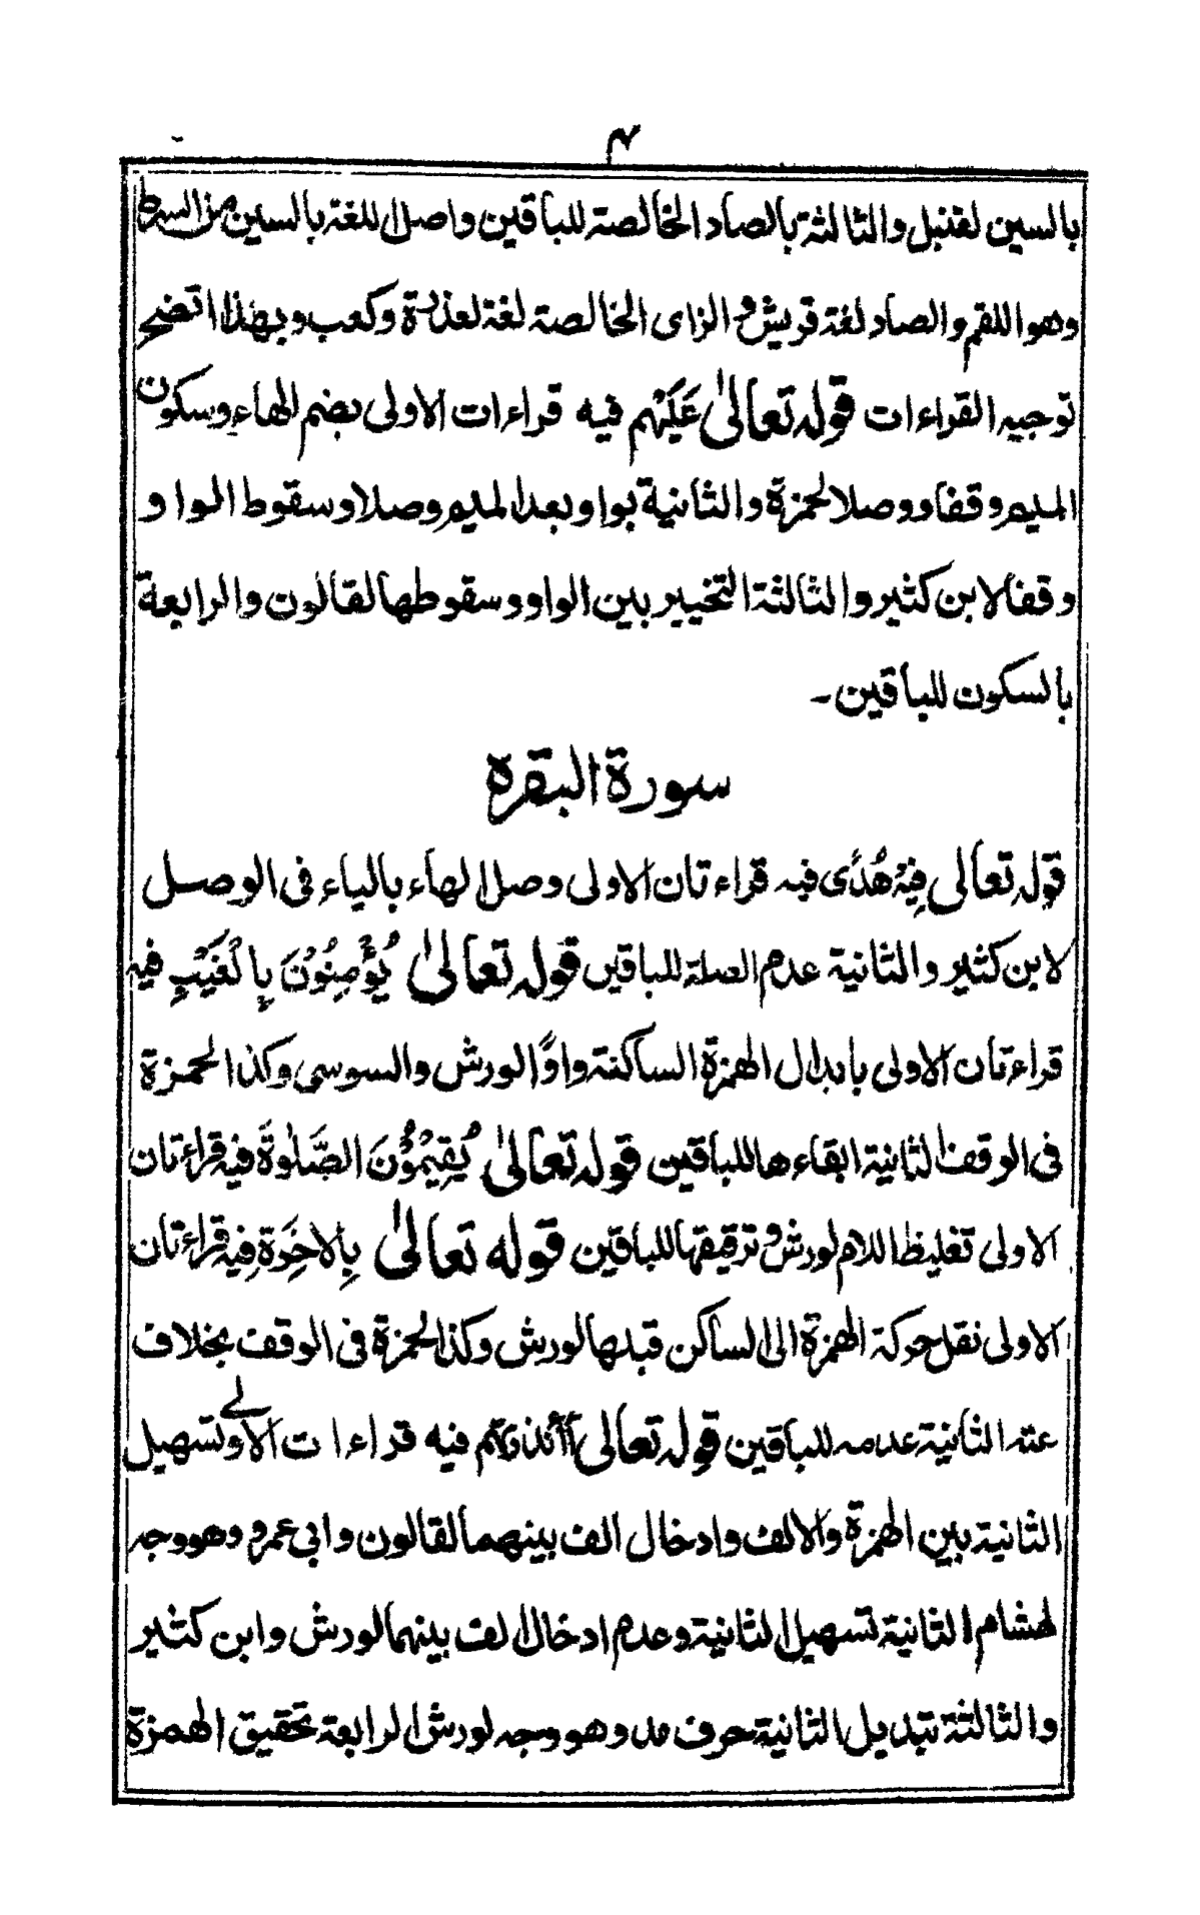 ۴
بالسين لقنبل والثالثة بالصاد الخالصة للباقين واصل اللغة بالسين من السرط
وهو اللقم والصاد لغة قريش والزاى الخالصة لغة لعذرة وكعب وبهذا اتضح
توجيه القراءات قوله تعالىٰ عَلَيْهِم فيه قراءات الاولى بضم الهاء وسكون
الميم وقفا ووصلا لحمزة والثانية بواو بعد الميم وصلا وسقوط الواو
وقفا لابن كثير والثالثة التخيير بين الواو وسقوطها لقالون والرابعة
بالسكون للباقين۔
سورة البقرة
قوله تعالى فِيْهِ هُدًى فيه قراءتان الاولى وصل الهاء بالياء فى الوصل
لابن كثير والثانية عدم الصلة للباقين قوله تعالىٰ يُؤْمِنُوْنَ بِالْغَيْبِ فيه
قراءتان الاولى بابدال الهمزة الساكنة واوًا لورش والسوسى وكذا لحمزة
فى الوقف الثانية ابقاءها للباقين قوله تعالىٰ يُقِيْمُوْنَ الصَّلٰوةَ فيه قراءتان
الاولى تغليظ اللام لورش وترقيقها للباقين قوله تعالىٰ بِالاٰخِرَةِ فيه قراءتان
الاولى نقل حركة الهمزة الى الساكن قبلها لورش وكذا لحمزة فى الوقف بخلاف
عنه الثانية عدمه للباقين قوله تعالى أأنذرتهم فيه قراءات الاولى تسهيل
الثانية بين الهمزة والالف وادخال الف بينهما لقالون وابى عمرو وهو وجه
لهشام الثانية تسهيل الثانية وعدم ادخال الف بينهما لورش وابن كثير
والثالثة تبديل الثانية حرف مد وهو وجه لورش الرابعة تحقيق الهمزة